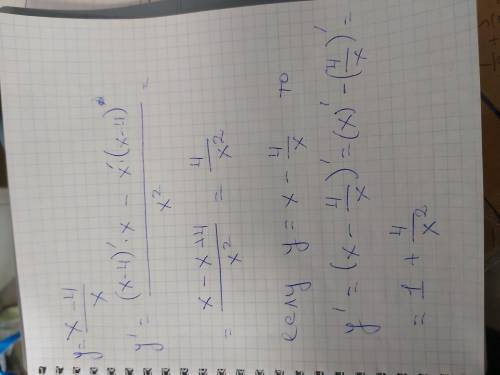 y = x-4/x
y' = (x-4)'·x - x'·(x-4)/x² =
= x-x+4/x² = 4/x²
если y = x - 4/x то
y' = (x - 4/x)' = (x)' - (4/x)' =
= 1 + 4/x²